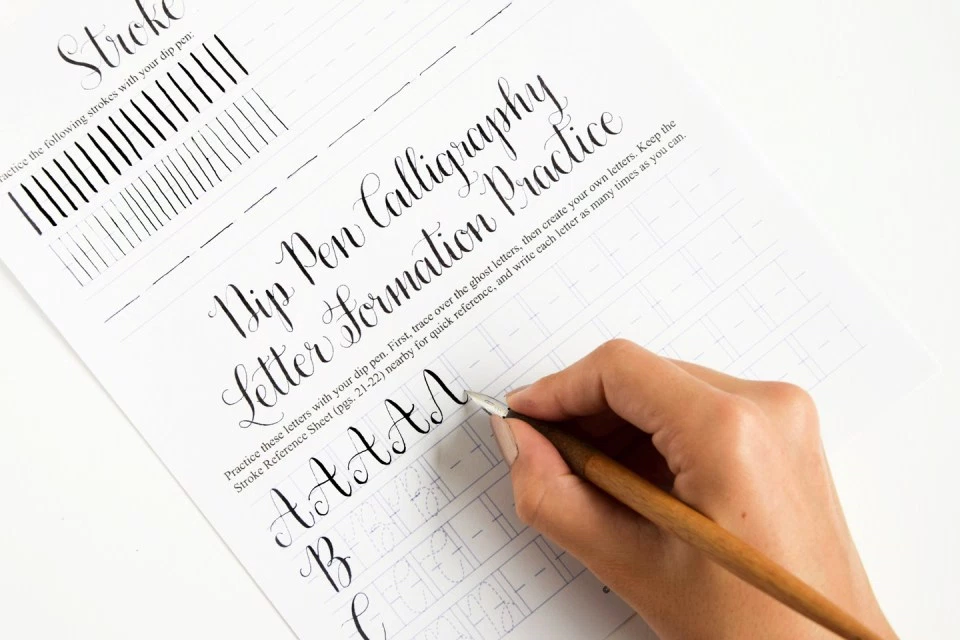 Stroke
ractice the following strokes with your dip pen:
Dip Pen Calligraphy
Letter Formation Practice
Practice these letters with your dip pen. First, trace over the ghost letters, then create your own letters. Keep the
Stroke Reference Sheet (pgs. 21-22) nearby for quick reference, and write each letter as many times as you can.
A A A A
B
C